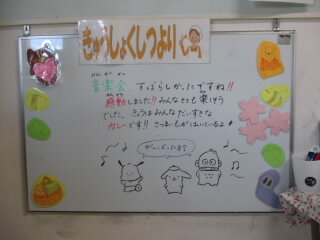 きゅうしょくしつより
おん がく かい
音楽会、すばらしかったですね!!
かんどう　たの
感動しました!! みんなとても楽しそう
でした。きょうはみんなだいすきな
カレーです!! さつまいもがはいっているよ